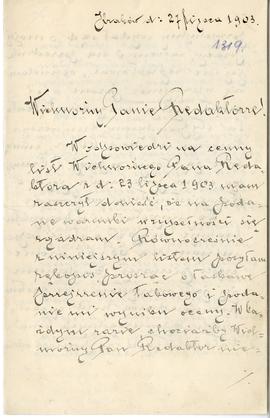 Kraków d: 27 lipca 1903.
1319.
Wielmożny Panie Redaktorze!
W odpowiedzi na cenny
list Wielmożnego Pana Reda-
ktora z d: 23 lipca 1903 mam
zaszczyt donieść, że na poda-
ne warunki w zupełności się
zgadzam. Równocześnie
z niniejszym listem posyłam
rękopis prosząc o łaskawe
przejrzenie takowego i poda-
nie mi wyniku oceny. W ka-
żdym razie, chociażby Wiel-
możny Pan Redaktor nie-